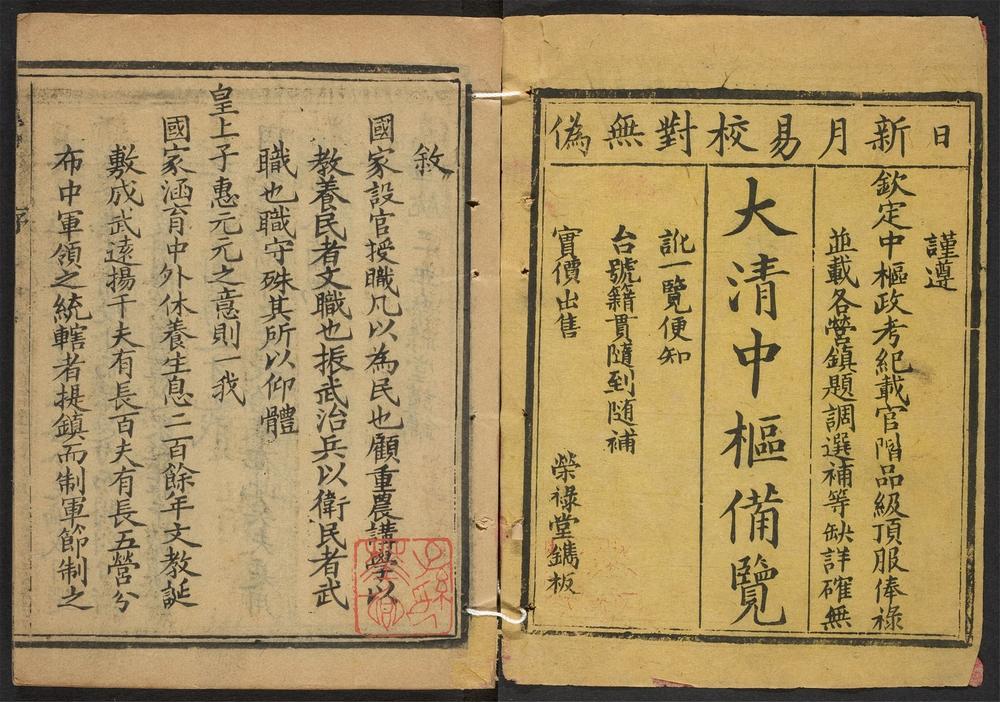 日新月易校對無偽
謹遵
欽定中樞政考紀載官階品級頂服俸祿
並載各營鎮題調選補等缺詳確無
大清中樞備覽
訛一覽便知
台號籍貫隨到随補
實價出售
榮祿堂鐫板
敘
國家設官授職凡以為民也顧重農講學以
教養民者文職也振武治兵以衛民者武
職也職守殊其所以仰體
皇上子惠元元之意則一我
國家涵育中外休養生息二百餘年文教誕
敷成武遠揚千夫有長百夫有長五營分
布中軍領之統轄者提鎮而制軍節制之
序